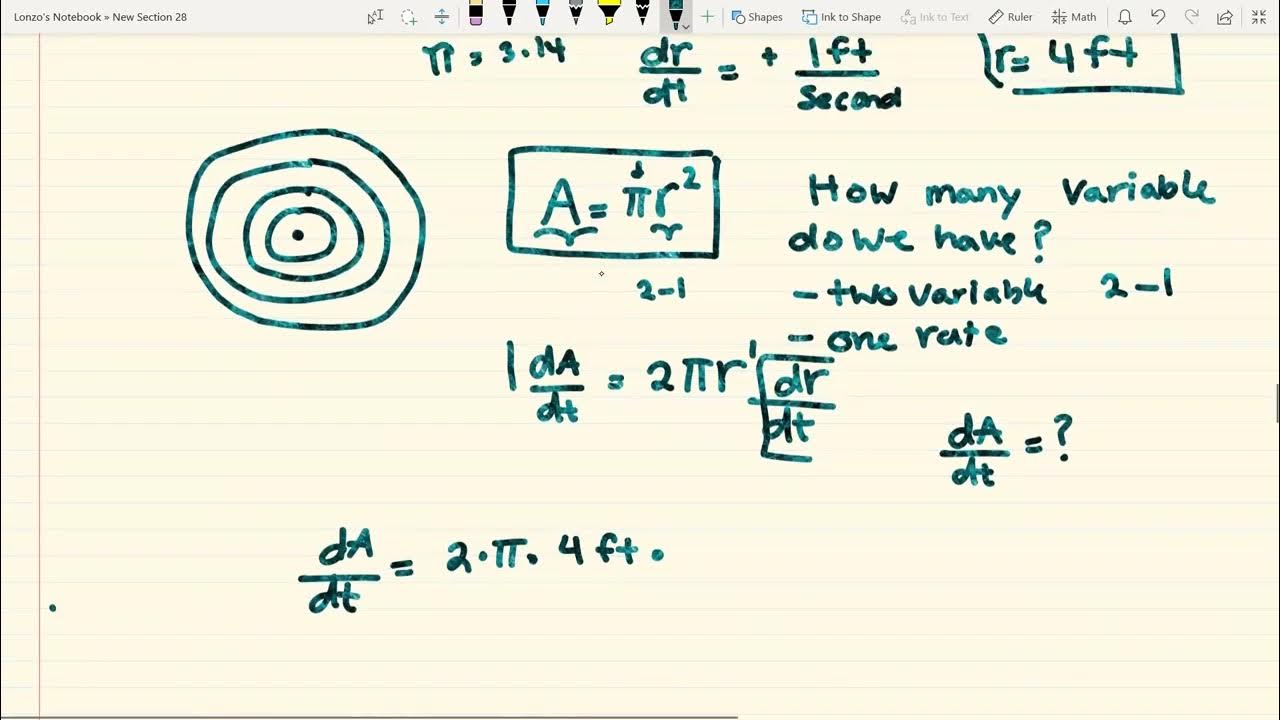 Lonzo's Notebook » New Section 28
Shapes Ink to Shape Ink to Text Ruler Math
π = 3.14 dr/dt = + 1ft/second r = 4ft
A = πr²
How many variable
do we have?
2-1
- two variable 2-1
- one rate
1 dA/dt = 2πr¹ dr/dt
dA/dt = ?
dA/dt = 2·π·4ft·